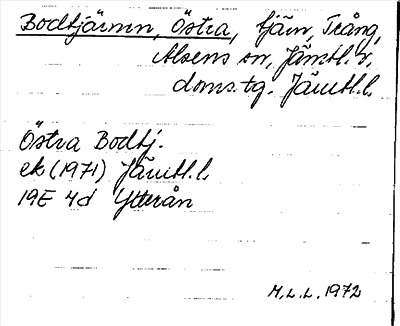 Bodtjärnen, Östra, tjärn, Trång,
Alsens sn, Jämtl. v.
doms.tg. Jämtl. l.
Östra Bodtj.
ek (1971) Jämtl. l.
19E 4d Ytterån
M.L.L. 1972